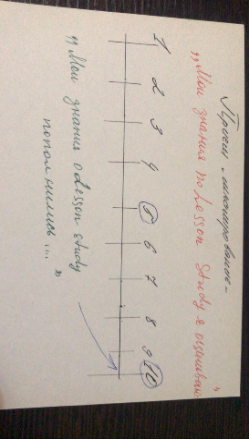 Прием „шкалирование"
„Мои знания по Lesson Study я оцениваю"
1 2 3 4 5 6 7 8 9 10
„Мои знания о Lesson Study
пополнились ... "